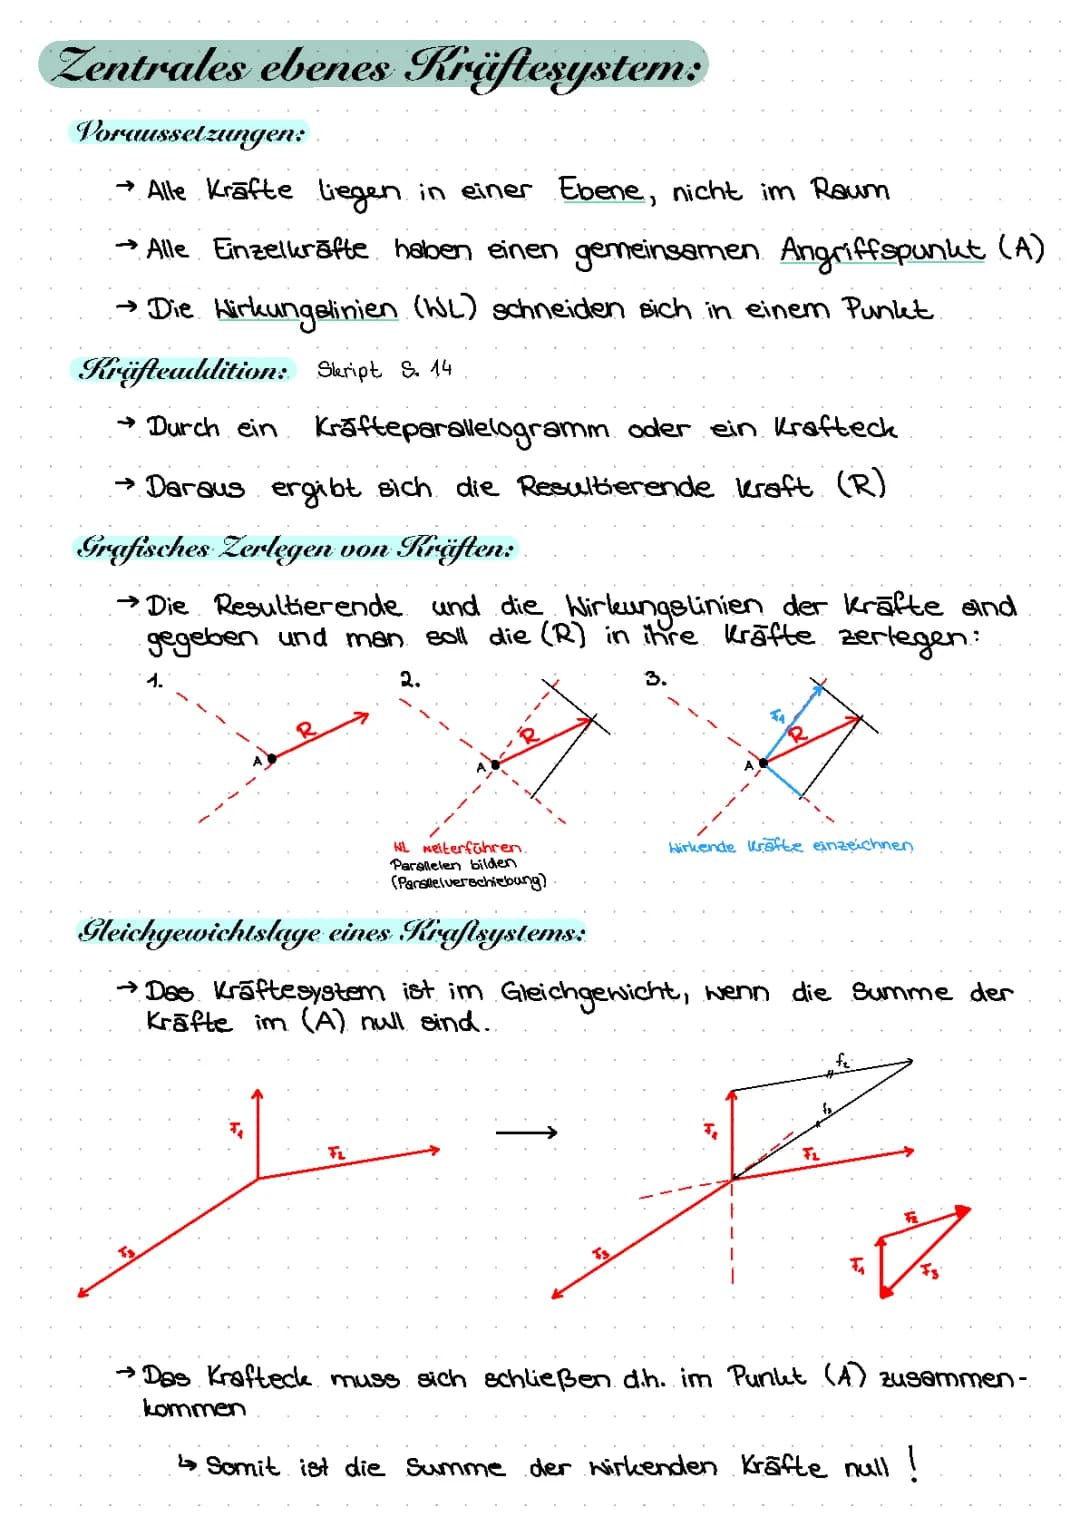 Zentrales ebenes Kräftesystem:
Voraussetzungen:
→ Alle Kräfte liegen in einer Ebene, nicht im Raum
→ Alle Einzelkräfte haben einen gemeinsamen Angriffspunkt (A)
→ Die Wirkungslinien (WL) schneiden sich in einem Punkt
Kräfteaddition: Skript S. 14
→ Durch ein Kräfteparallelogramm oder ein Krafteck
→ Daraus ergibt sich die Resultierende Kraft (R)
Grafisches Zerlegen von Kräften:
→ Die Resultierende und die Wirkungslinien der Kräfte sind
gegeben und man soll die (R) in ihre Kräfte zerlegen:
1. 2. 3.
R A
R A
F1 R A
WL weiterführen
Parallelen bilden
(Parallelverschiebung)
Wirkende Kräfte einzeichnen
Gleichgewichtslage eines Kraftsystems:
→ Das Kräftesystem ist im Gleichgewicht, wenn die Summe der
Kräfte im (A) null sind.
F1 F2 F3
→
f2 f3 F1 F2 F3
F2 F1 F3
→ Das Krafteck muss sich schließen d.h. im Punkt (A) zusammen-
kommen
↳ Somit ist die Summe der wirkenden Kräfte null !